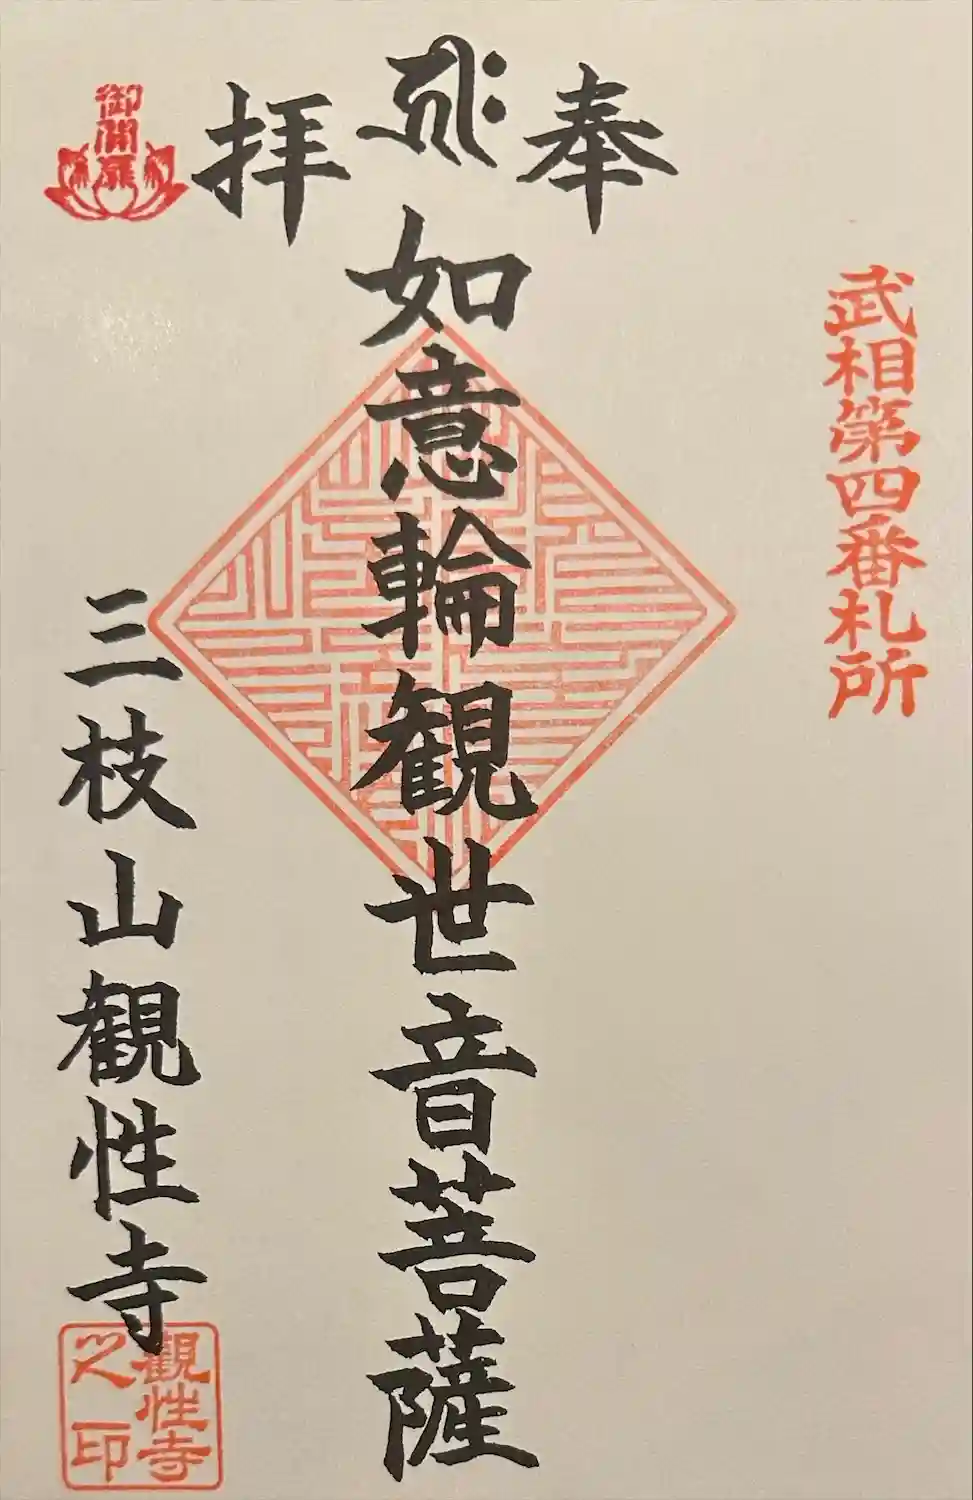 武相第四番札所
奉拝
ह्रीः
如意輪観世音菩薩
三枝山観性寺
御開扉
観性寺之印